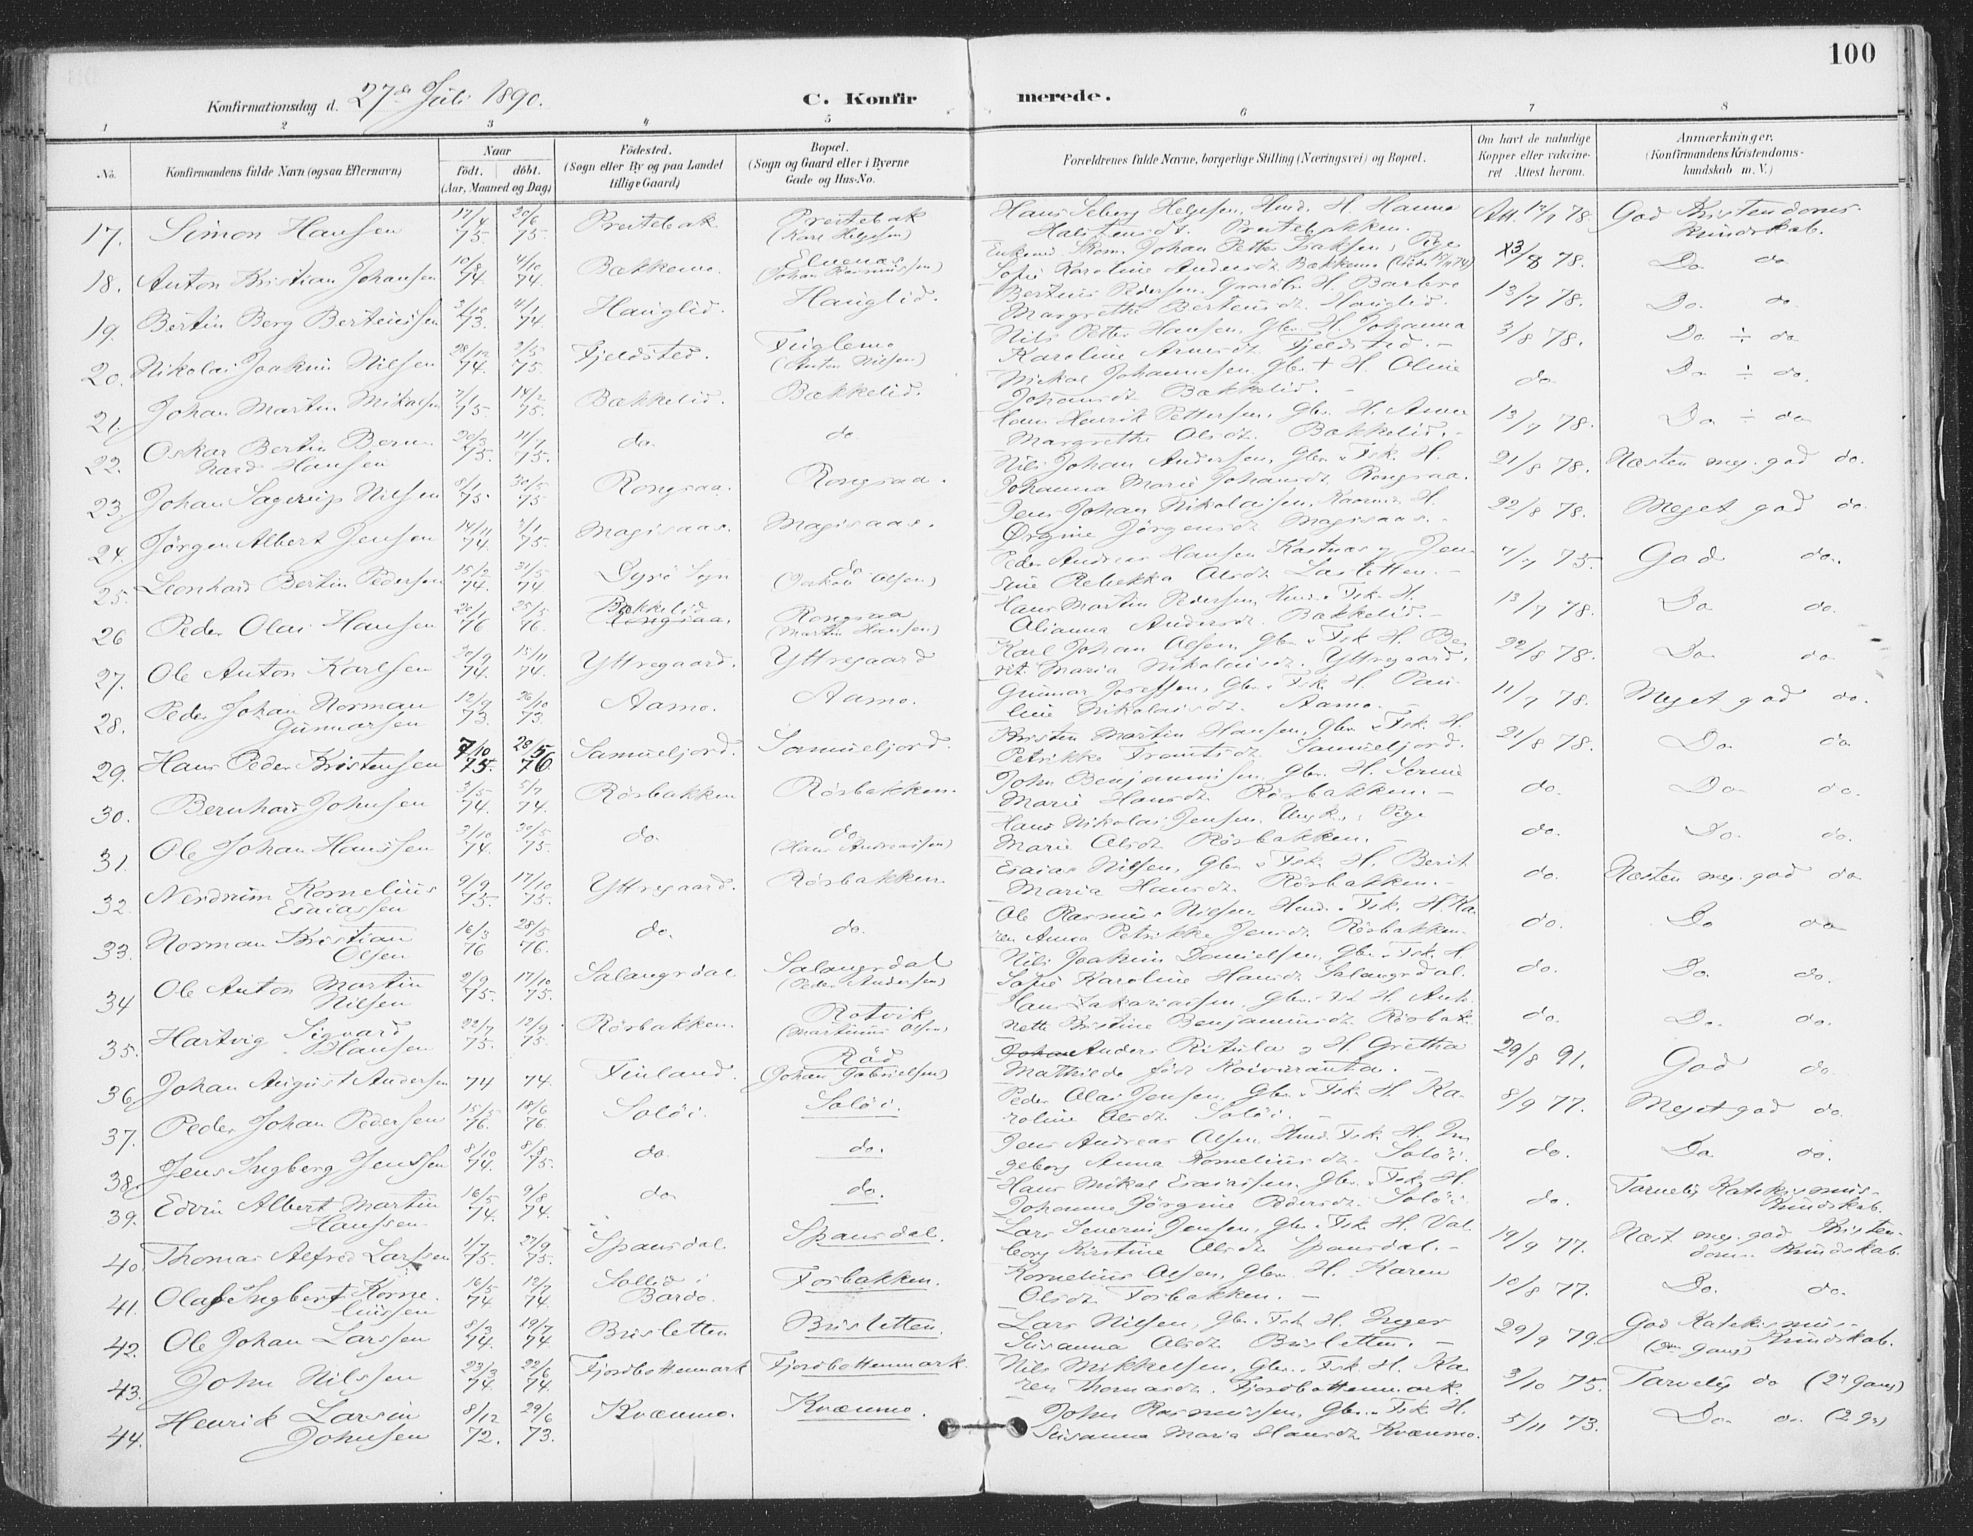 100
Konfirmationsdag d. 27de Juli 1890. C. Konfirmerede.
1 2 3 4 5 6 7 8
No. Konfirmandens fulde Navn (ogsaa Efternavn) Naar født. døbt. (Aar, Maaned og Dag) Fødested. (Sogn eller By og paa Landet tillige Gaard) Bopæl. (Sogn og Gaard eller i Byerne Gade og Hus-No. Forældrenes fulde Navne, borgerlige Stilling (Næringsvei) og Bopæl. Om havt de naturlige Kopper eller vakcineret Attest herom. Anmærkninger. (Konfirmandens Kristendomskundskab m. V.)
17. Simon Hansen 17/4 75. 20/6 75. Prestebak Prestebak (Karl Helgesen) Hans Seberg Helgesen, Hmd. H. Hanna Prestebakken. Att. 78. God Kristendomskundskab.
18. Anton Kristian Johansen 10/8 74. 4/10 74. Bækkemo. Elvenæs (Johan Rasmussen) Johan Petter Isaksen, Pige Karoline Andersdt. Bækkemo 13/8 78. Do do
19. Bertin Berg Bertinussen 73. 74. Hauglid. Hauglid. Bertinus Pedersen, Gaardbr. H. Barbro Margrethe Bertinusdt. Hauglid. 13/7 78. Do. do
20. Nikolai Joakim Nilsen 28/12 74. 2/5 75. Fjeldsted. Fuglemo (Anton Nilsen) Nils Petter Hansen, Gbr. H. Johanna Karoline Arnesdt. Fjeldsted. - 3/8 78. Do ÷ do
21. Johan Martin Mikalsen 75. 75. Bækkelid. Bækkelid. Mickal Johannesen, Gbr. + H. Oline Johansdt. Bækkelid. - do Do ÷ do.
22. Oskar Bertin Bernhard Hansen 20/3 75. 11/7 75. do. do Hans Henrik Pettersen, Gbr. H. Anna Margrethe Olsdt. Bækkelid. - 13/7 78. Do ÷ do
23. Johan Sagerup Nilsen 75. 30/5 75 Rongsaa. Rongsaa. Nils Johan Andersen, Gbr. Fsk. H. Johanna Marie Johansdt. Rongsaa. 21/8 78. Næsten meg. god do.
24. Jörgen Albert Jensen 14/11 74. 75. Magisaas. Magisaas. Jens Johan Nikolaisen, H. Örgine Jörgensdt. Magisaas. - 22/8 78. Meget god do.
25. Leonhard Bertin Pedersen 15/2 74. 31/5 74 Dyrö Sogn do (Jakob Olsen) Peder Andreas Hansen Kastnæs og Jensine Rebekka Olsdt. - 7/7 75. God do.
26 Peder Olai Hansen 20/1 76 25/5 76. Bækkelid Rongsaa. Rongsaa (Martin Hansen) Hans Martin Pedersen, Hmd. Fsk. H. Olianna Andersdt. Bækkelid. - 13/7 78. Do do.
27. Ole Anton Karlsen 30/9 74. 15/11 74. Yttregaard. Yttregaard Karl Johan Olsen, Gbr. Fsk. H. Berit Maria Nikolaisdt. Yttregaard. 22/8 78. Do do.
28. Peder Johan Norman Gunnarsen 12/9 73. 26/10 73. Aamo. Aamo. Gunnar Josefsen, Gbr. Fsk. H. Pauline Nikolaisdt. Aamo. - 11/7 78. Meget god do.
29. Hans Peder Kristensen 7/10 75. 28/5 76 Samueljord. Samueljord. Kristen Martin Hansen, Gbr. Fsk. H. Petrikke Frantsdt. Samueljord. 21/8 78. Do do
30. Bernhard Johnsen 3/5 74. 5/7 74. Rösbakken Rösbakken. John Benjaminsen, Gbr. H. Marie Hansdt. Rösbakken. - do. Do do.
31. Ole Johan Hanssen 3/10 74. 30/5 75. do do (Hans Andreassen) Hans Nikolai Jensen, Ungk., Pige Marie Olsdt. Rösbakken. - do. Do. do.
32. Nerdrum Kornelius Esaiassen 9/9 75. 17/10 75. Yttregaard. Rösbakken. Esaias Nilsen, Gbr. Fsk. H. Berit Maria Hansdt. Rösbakken. - do. Næsten meg. god do
33. Norman Kristian Olsen 16/3 76 28/5 76. do. do. Ole Rasmus Nilsen, Hmd. Fsk. H. Karen Anna Petrikke Jensdt. Rösbakken. do. Do do
34 Ole Anton Martin Nilsen 9/9 75. 17/10 75. Salangsdal Salangsdal (Peder Andersen) Nils Joakim Danielsen, Gbr. Fsk. H. Sofie Karoline Hansdt. Salangsdal. do. Do. do.
35. Hartvig Sigvard Hansen 22/7 75. 12/9 75. Rösbakken. Rotvik (Martinus Olsen) Hans Sakariasen, Gbr. Fsk. H. Antonette Kristine Benjaminsdt. Rösbak. do. Do. do.
36. Johan August Andersen 74 74. Finland. Röd (Johan Gabrielsen) Johan Anders Ritula og H. Gretha Mathilde födt Koivuranta. - 29/8 91. God do.
37. Peder Johan Pedersen 15/5 76. 18/6 76. Solöi. Solöi. Peder Olai Jensen, Gbr. Fsk. H. Karoline Olsdt. Solöi. - 8/9 77. Meget god do.
38. Jens Ingberg Jenssen 8/10 74. 8/8 75. do. do. Jens Andreas Olsen, Hmd. Fsk. H. Ingeborg Anna Korneliusdt. Solöi. do. Do. do.
39. Edvin Albert Martin Hanssen 16/5 74. 9/8 74. do do. Hans Mikal Esaiasen, Gbr. Fsk. H. Johanne Jörgine Pedersdt. Solöi. do. Tarvelig Katekismuskundskab.
40. Thomas Alfred Larssen 1/7 75. 27/9 75. Spansdal. Spansdal. Lars Severin Jensen, Gbr. Fsk. H. Valborg Kirstine Olsdt. Spansdal. - 19/9 77. Næst meg. god Kristendoms Kundskab.
41. Olaf Ingbert Korneliussen 16/5 74 12/7 74. Sollid i Bardo. Fosbakken. Kornelius Olsen, Gbr. H. Karen Olsdt. Fosbakken. - 10/8 77. Do. do.
42. Ole Johan Larssen 8/3 74. 19/7 74 Brisletten Brisletten. Lars Nilsen, Gbr. Fsk. H. Inger Susanna Olsdt. Brisletten. - 29/9 79. God Katekismuskundskab. (2den Gang)
43. John Nilssen 23/3 74. 22/6 74. Fjordbottenmark Fjordbottenmark. Nils Mikkelsen, Gbr. Fsk. H. Karen Thomasdt. Fjordbottenmark. 3/10 75. Tarvelig do (2d Gang)
44. Henrik Larsin Johnsen 8/12 72. 29/6 73. Kvænmo. Kvænmo. John Rasmussen, Gbr. Fsk. H. Susanna Maria Hansdt. Kvænmo. 5/11 73. Do. do. (2 G.)